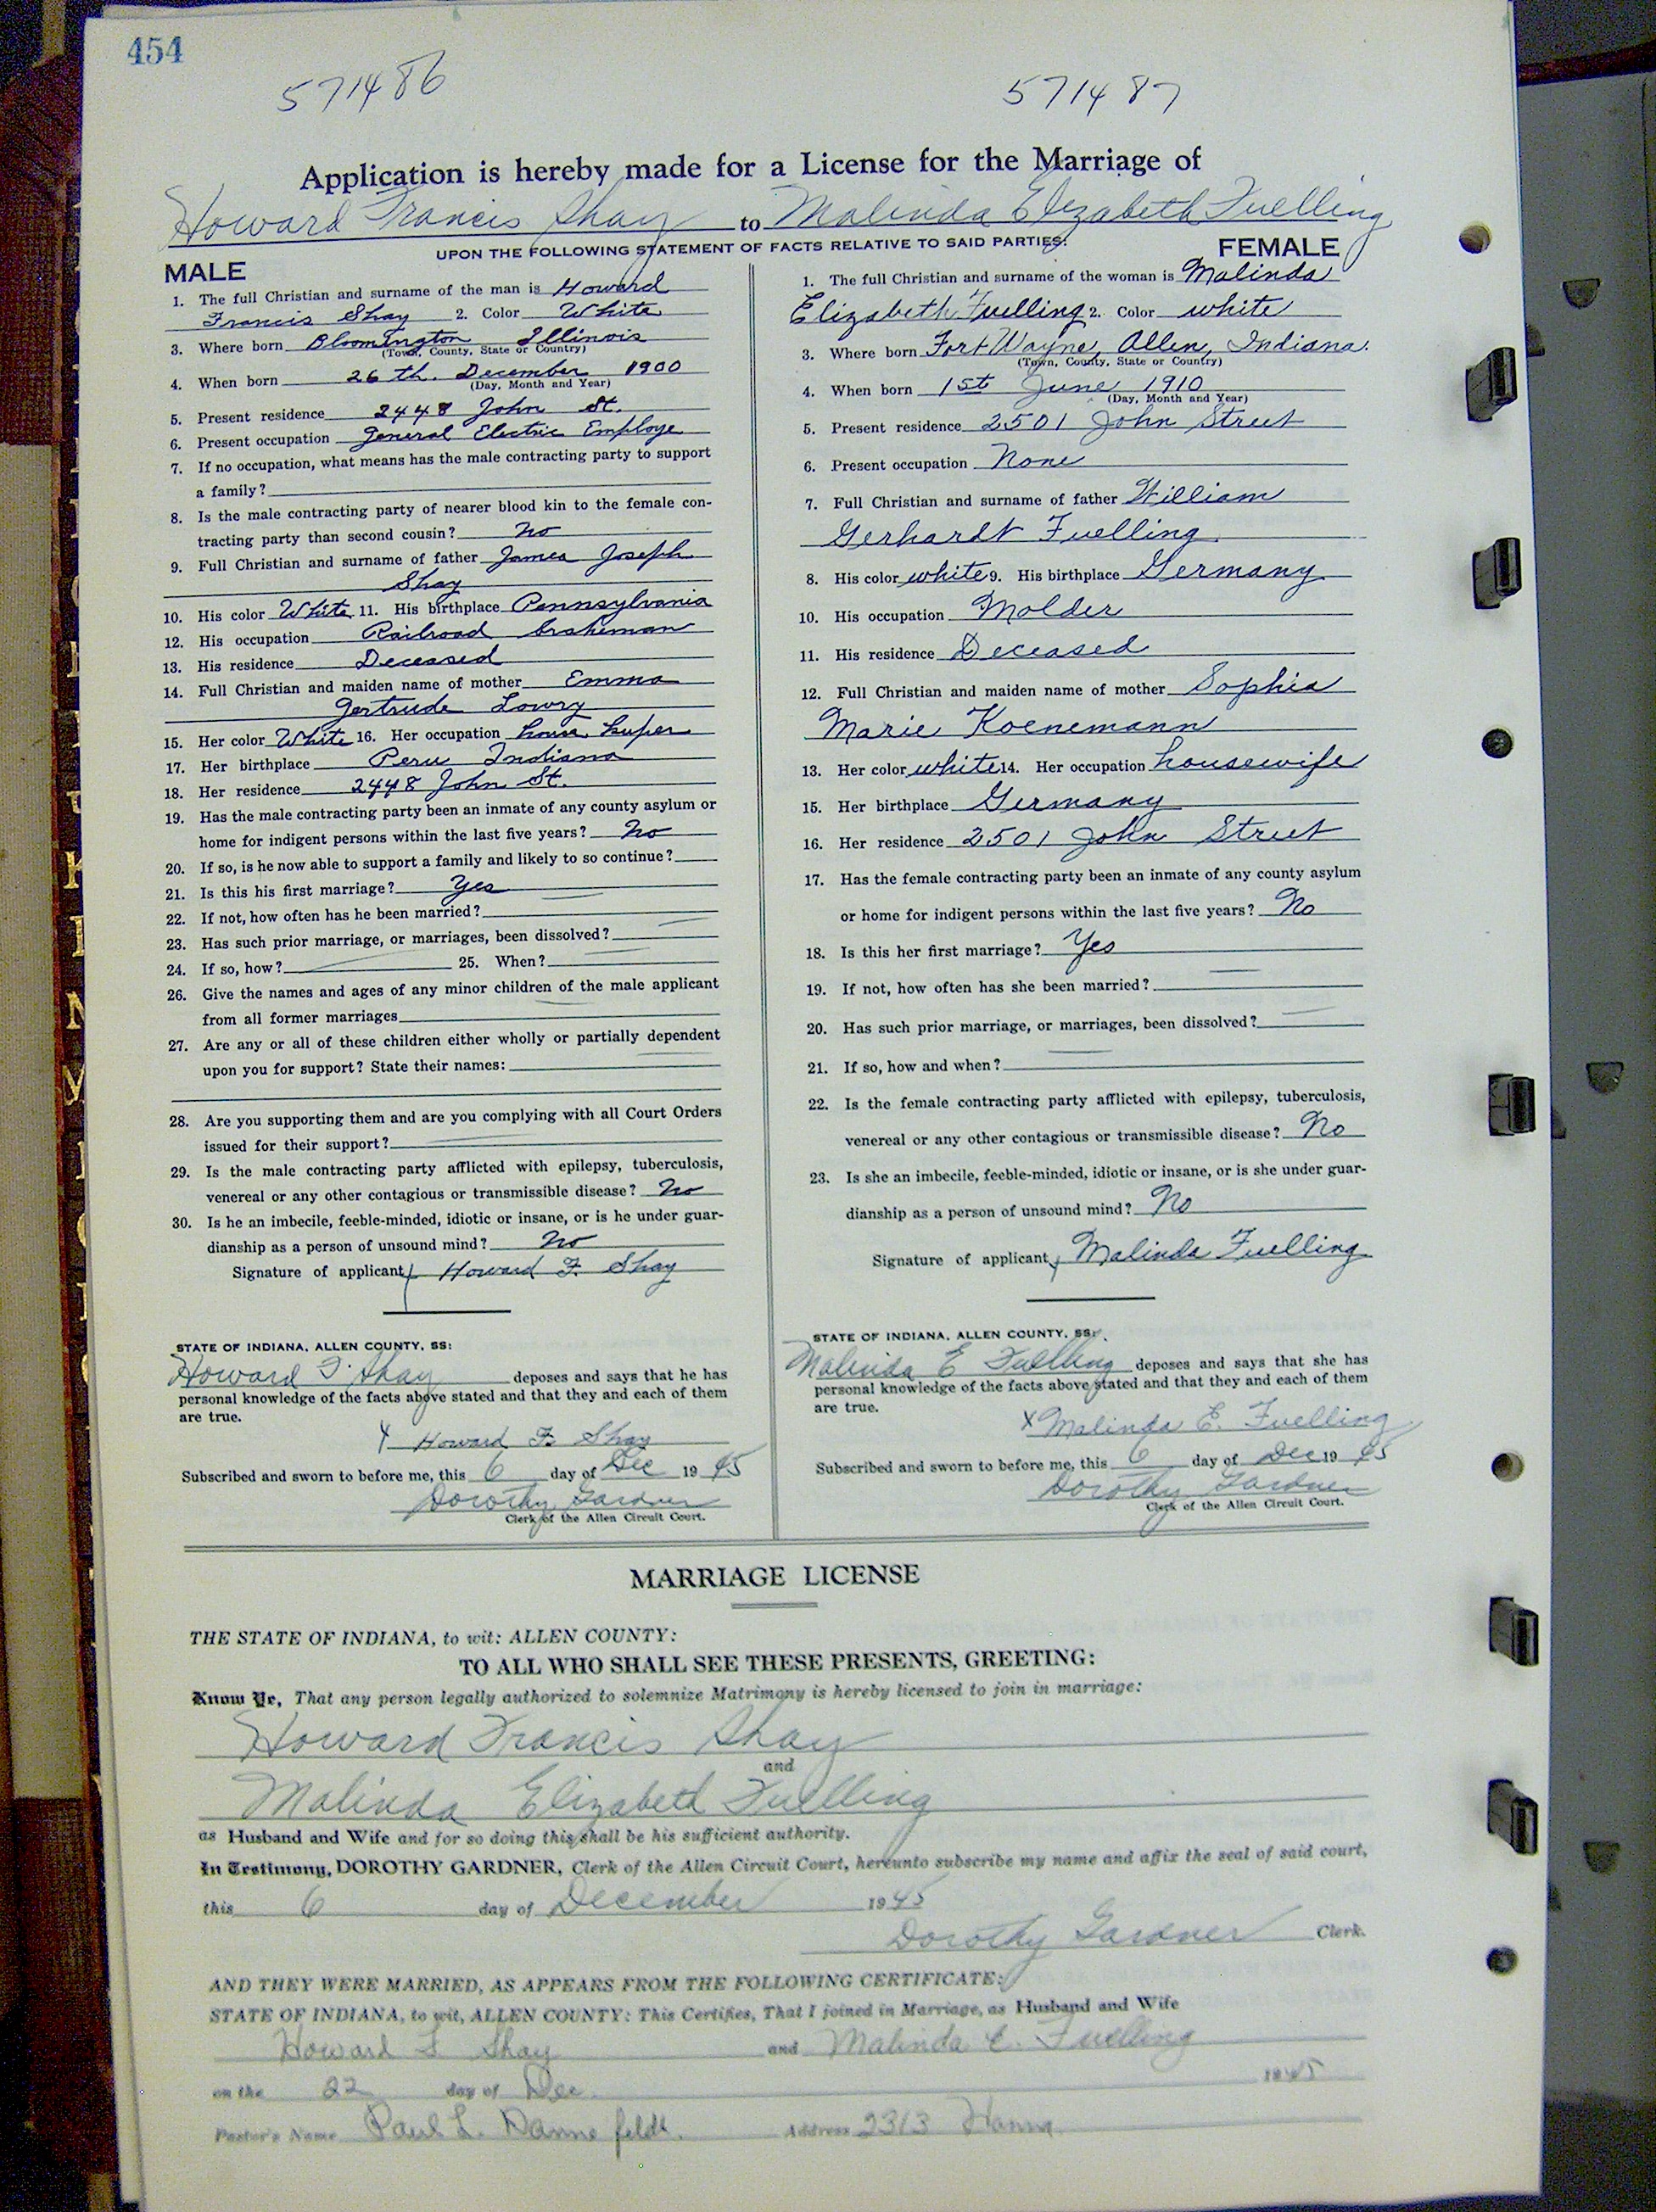 454
571486 571487
Application is hereby made for a License for the Marriage of
Howard Francis Shay to Malinda Elizabeth Fuelling
UPON THE FOLLOWING STATEMENT OF FACTS RELATIVE TO SAID PARTIES:
MALE
1. The full Christian and surname of the man is Howard
Francis Shay 2. Color White
3. Where born Bloomington Illinois
(Town, County, State or Country)
4. When born 26th. December 1900
(Day, Month and Year)
5. Present residence 2448 John St.
6. Present occupation General Electric Employe
7. If no occupation, what means has the male contracting party to support
a family?
8. Is the male contracting party of nearer blood kin to the female con-
tracting party than second cousin? No
9. Full Christian and surname of father James Joseph
Shay
10. His color White 11. His birthplace Pennsylvania
12. His occupation Railroad brakeman
13. His residence Deceased
14. Full Christian and maiden name of mother Emma
Gertrude Lowry
15. Her color White 16. Her occupation house keeper
17. Her birthplace Peru Indiana
18. Her residence 2448 John St.
19. Has the male contracting party been an inmate of any county asylum or
home for indigent persons within the last five years? No
20. If so, is he now able to support a family and likely to so continue?
21. Is this his first marriage? Yes
22. If not, how often has he been married?
23. Has such prior marriage, or marriages, been dissolved?
24. If so, how? 25. When?
26. Give the names and ages of any minor children of the male applicant
from all former marriages
27. Are any or all of these children either wholly or partially dependent
upon you for support? State their names:
28. Are you supporting them and are you complying with all Court Orders
issued for their support?
29. Is the male contracting party afflicted with epilepsy, tuberculosis,
venereal or any other contagious or transmissible disease? No
30. Is he an imbecile, feeble-minded, idiotic or insane, or is he under guar-
dianship as a person of unsound mind? No
Signature of applicant Howard F. Shay
STATE OF INDIANA, ALLEN COUNTY, SS:
Howard F. Shay deposes and says that he has
personal knowledge of the facts above stated and that they and each of them
are true.
X Howard F. Shay
Subscribed and sworn to before me, this 6 day of Dec 1945
Dorothy Gardner
Clerk of the Allen Circuit Court.
FEMALE
1. The full Christian and surname of the woman is Malinda
Elizabeth Fuelling 2. Color white
3. Where born Fort Wayne, Allen, Indiana.
(Town, County, State or Country)
4. When born 1st June 1910
(Day, Month and Year)
5. Present residence 2501 John Street
6. Present occupation None
7. Full Christian and surname of father William
Gerhardt Fuelling
8. His color white 9. His birthplace Germany
10. His occupation Molder
11. His residence Deceased
12. Full Christian and maiden name of mother Sophia
Marie Koenemann
13. Her color white 14. Her occupation housewife
15. Her birthplace Germany
16. Her residence 2501 John Street
17. Has the female contracting party been an inmate of any county asylum
or home for indigent persons within the last five years? No
18. Is this her first marriage? Yes
19. If not, how often has she been married?
20. Has such prior marriage, or marriages, been dissolved?
21. If so, how and when?
22. Is the female contracting party afflicted with epilepsy, tuberculosis,
venereal or any other contagious or transmissible disease? No
23. Is she an imbecile, feeble-minded, idiotic or insane, or is she under guar-
dianship as a person of unsound mind? No
Signature of applicant Malinda Fuelling
STATE OF INDIANA, ALLEN COUNTY, SS:
Malinda E Fuelling deposes and says that she has
personal knowledge of the facts above stated and that they and each of them
are true.
X Malinda E. Fuelling
Subscribed and sworn to before me, this 6 day of Dec 1945
Dorothy Gardner
Clerk of the Allen Circuit Court.
MARRIAGE LICENSE
THE STATE OF INDIANA, to wit: ALLEN COUNTY:
TO ALL WHO SHALL SEE THESE PRESENTS, GREETING:
Know Ye, That any person legally authorized to solemnize Matrimony is hereby licensed to join in marriage:
Howard Francis Shay
and
Malinda Elizabeth Fuelling
as Husband and Wife and for so doing this shall be his sufficient authority.
In Testimony, DOROTHY GARDNER, Clerk of the Allen Circuit Court, hereunto subscribe my name and affix the seal of said court,
this 6 day of December 1945
Dorothy Gardner Clerk.
AND THEY WERE MARRIED, AS APPEARS FROM THE FOLLOWING CERTIFICATE:
STATE OF INDIANA, to wit, ALLEN COUNTY: This Certifies, That I joined in Marriage, as Husband and Wife
Howard F. Shay and Malinda E. Fuelling
on the 22 day of Dec. 1945
Pastor's Name Paul L. Dannefeldt. Address 2313 Hanna